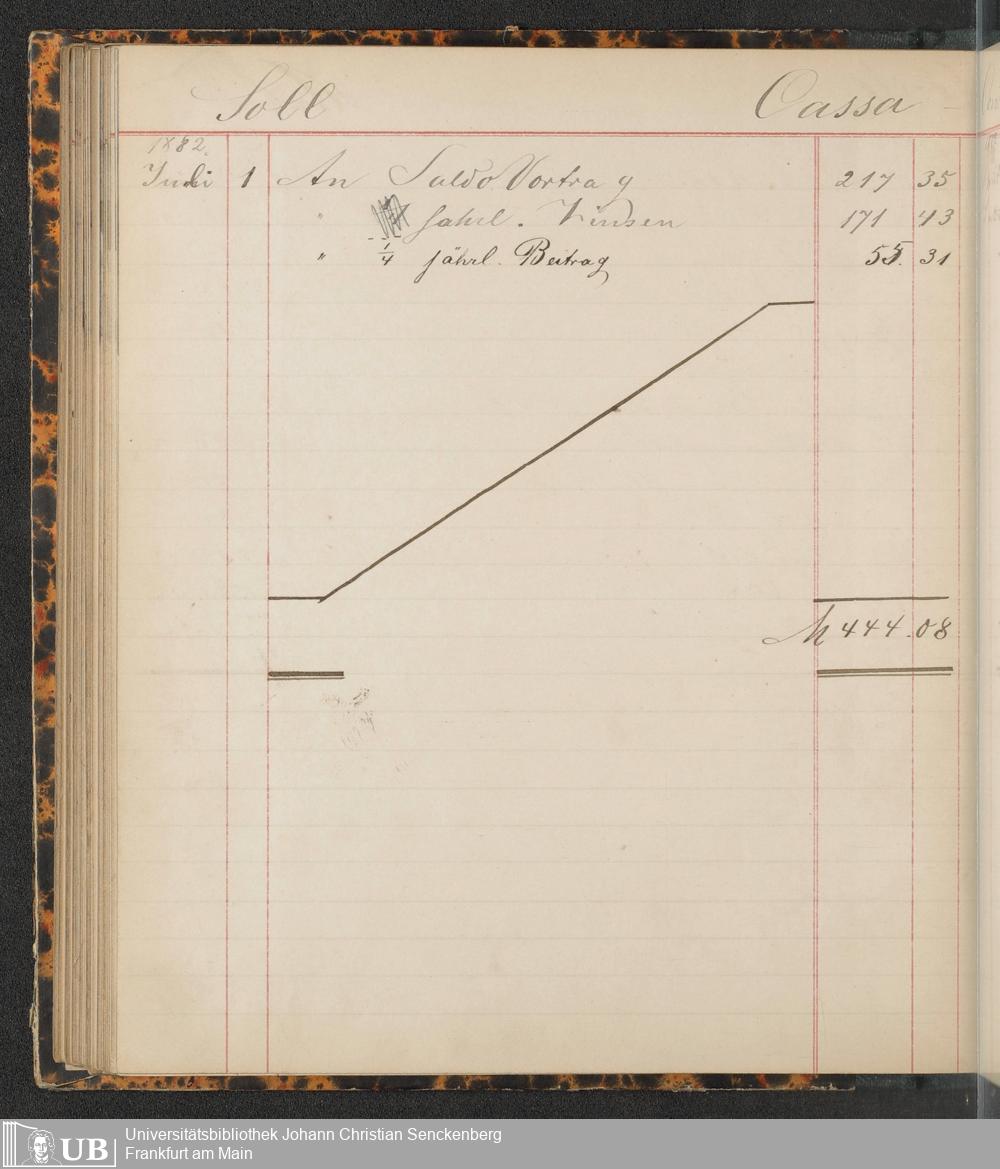 Soll Cassa
1882.
Juli 1 An Saldo Vortrag 217 35
" jahrl. Zinsen 171 43
" 1/4 jährl. Beitrag 55. 31
M 444.08
UB Universitätsbibliothek Johann Christian Senckenberg
Frankfurt am Main